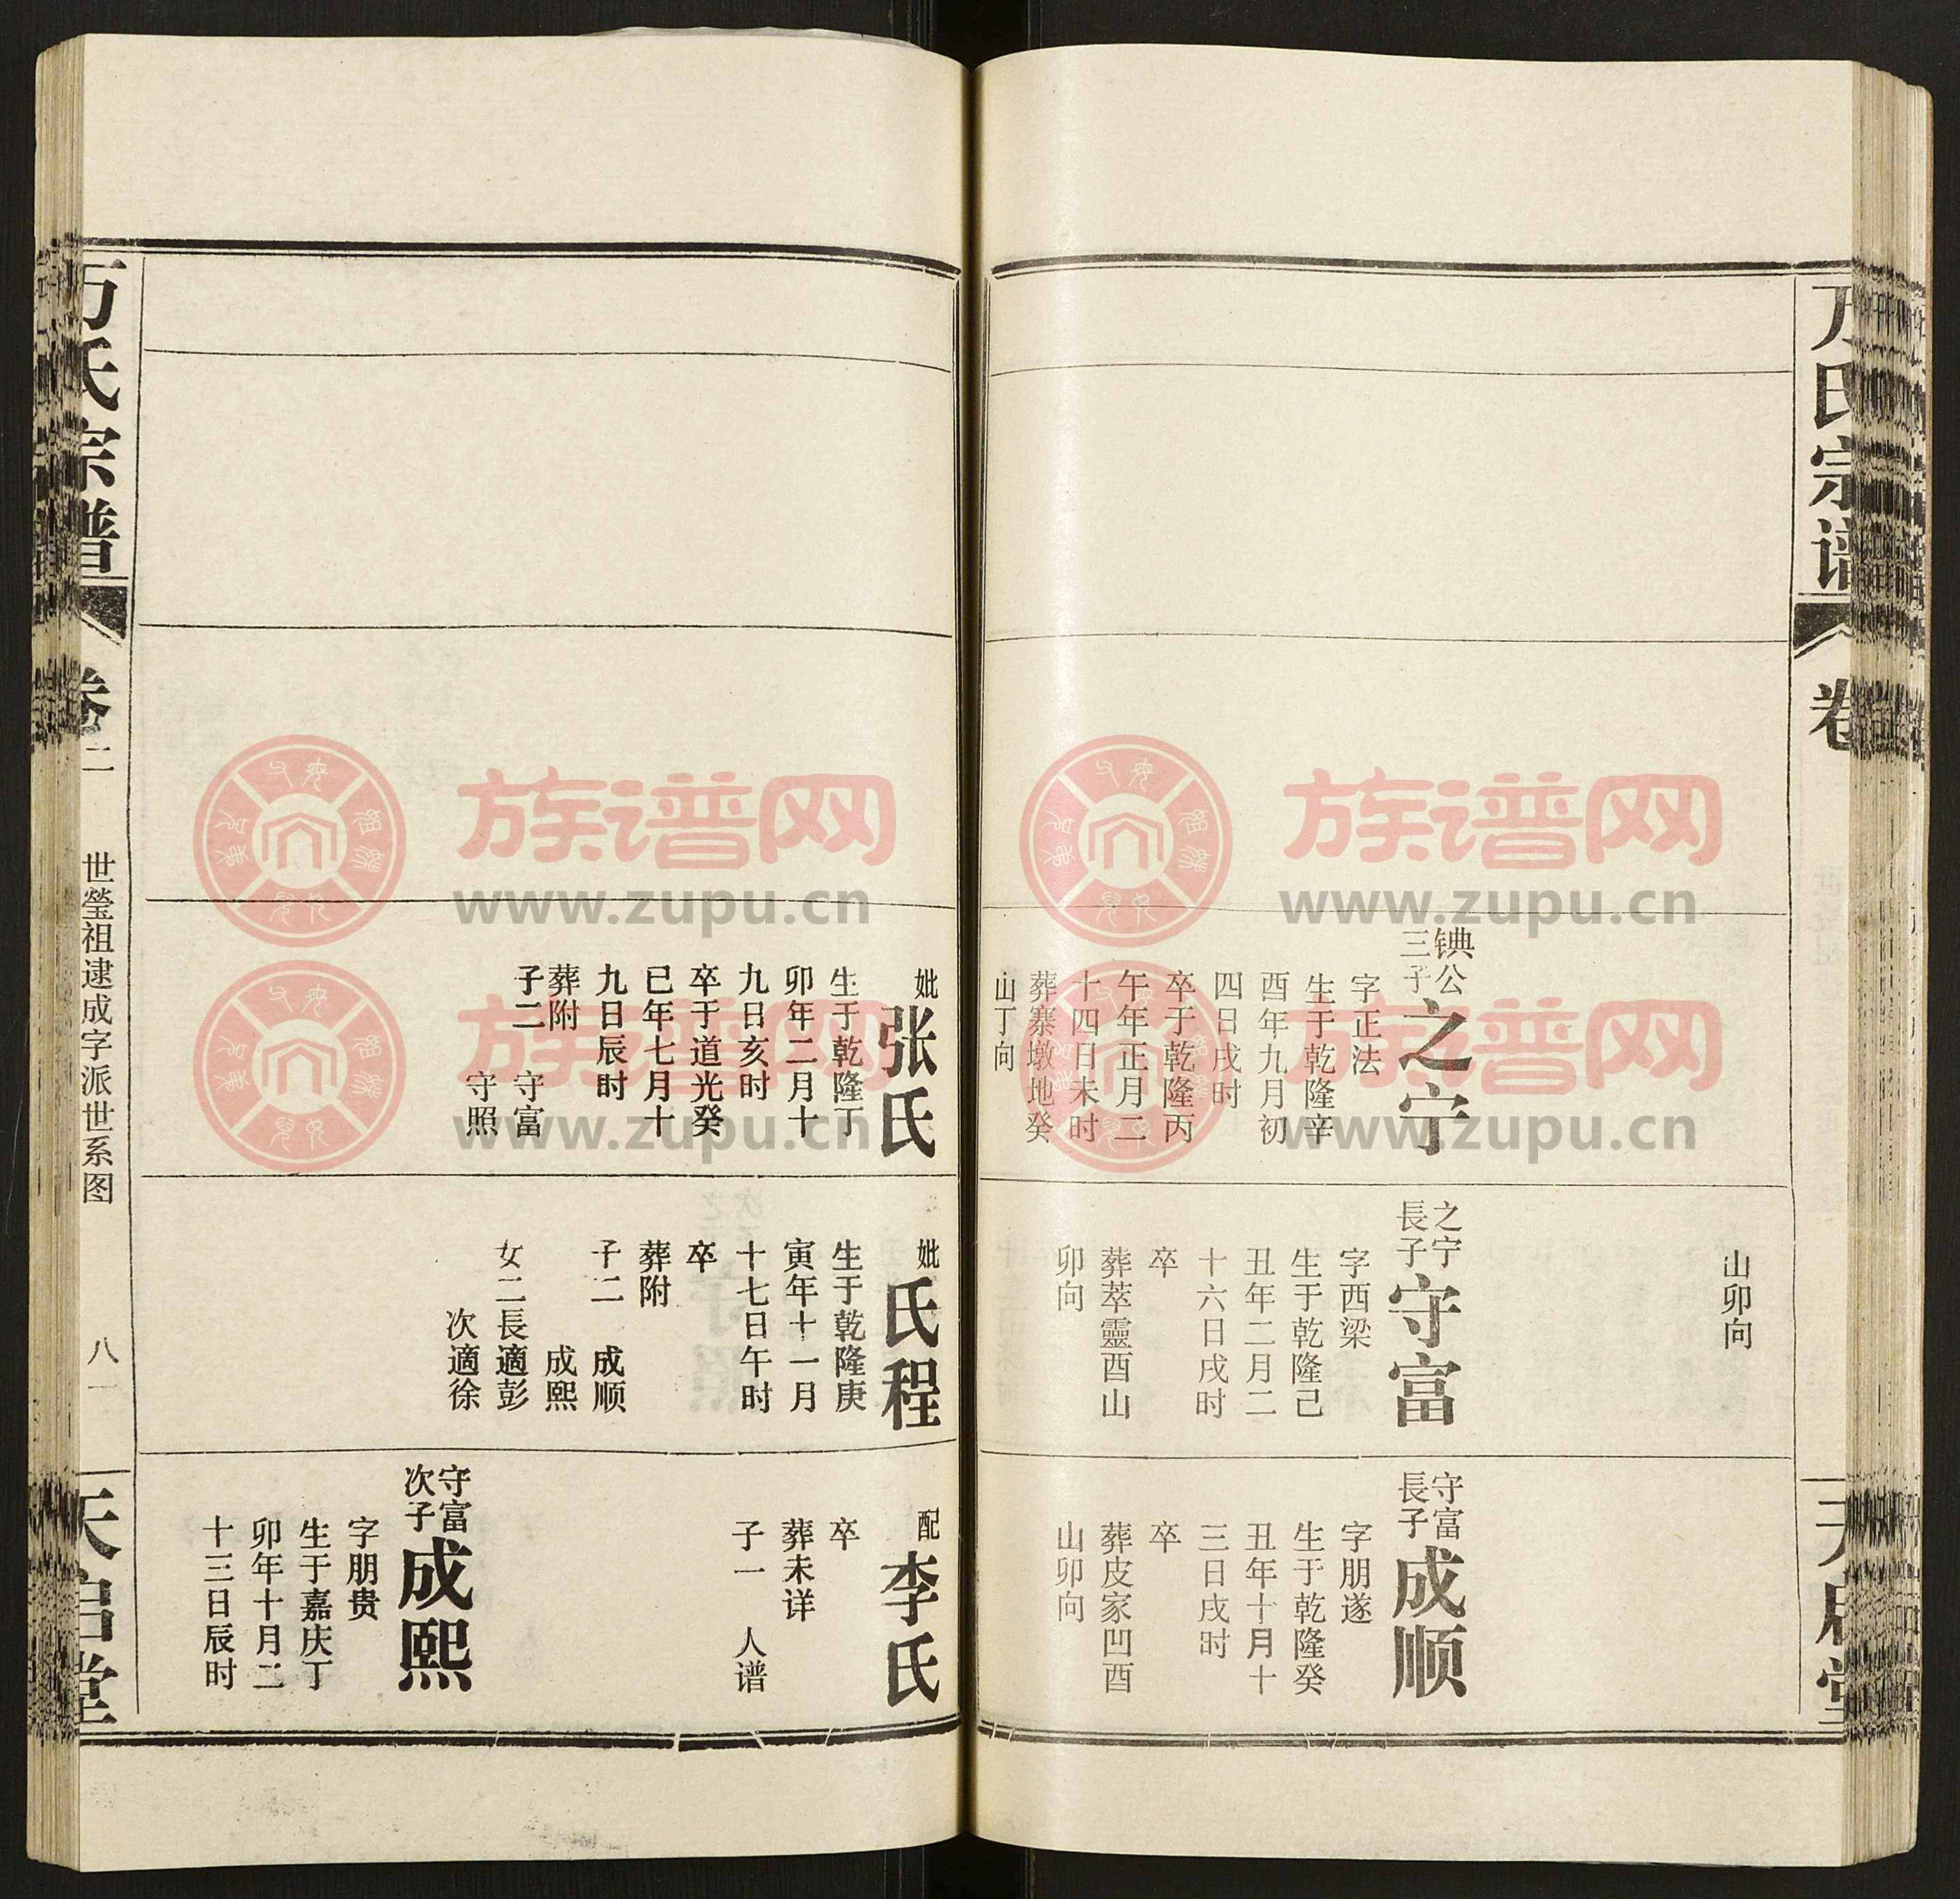 氏宗谱
卷
山卯向
锳公
三子
之宁
字正法
生于乾隆辛
酉年九月初
四日戌时
卒于乾隆丙
午年正月二
十四日未时
葬寨墩地癸
山丁向
之宁
長子
守富
字西梁
生于乾隆己
丑年二月二
十六日戌时
卒
葬萃靈酉山
卯向
守富
長子
成顺
字朋遂
生于乾隆癸
丑年十月十
三日戌时
卒
葬皮家凹酉
山卯向
妣
张氏
生于乾隆丁
卯年二月十
九日亥时
卒于道光癸
巳年七月十
九日辰时
葬附
子二 守富
守照
妣
氏程
生于乾隆庚
寅年十一月
十七日午时
卒
葬附
子二 成顺
成熙
女二長適彭
次適徐
配
李氏
卒
葬未详
子一 人谱
守富
次子
成熙
字朋贵
生于嘉庆丁
卯年十月二
十三日辰时
万氏宗谱
卷二
世瑩祖逮成字派世系图
八一
天启堂
族谱网
www.zupu.cn
族谱网
www.zupu.cn
族谱网
www.zupu.cn
族谱网
www.zupu.cn